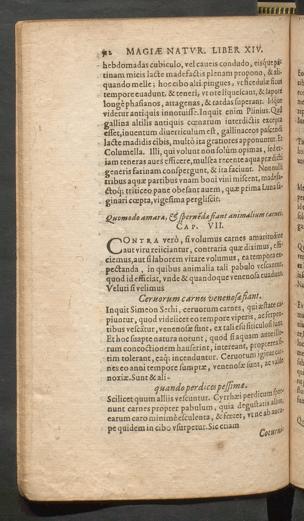 MAGIÆ NATVR. LIBER XIV.
hebdomadas cubiculo, vel caueis condudo, eisque pa-
tinam micis lacte madefactis plenam propono, & ali-
quando melle: hoc cibo alti pingues, vt ficedulæ ficus
tempore euadunt, & teneri, vt ore liquescant, & sapore
longè phasianos, attagenas, & turdas superant. Idque
videtur antiquis innotuisse. Inquit enim Plinius. Quod
gallina altilis antiquis cœnarum interdictis excepta
esset, inuentum diuerticulum est, gallinaceos pascendi
lacte madidis cibis, multò ita gratiores apponuntur. Et
Columella. Illi, qui volunt non solùm opimas, sed et-
iam teneras aues efficere, mulsea recente aqua prædicti
generis farinam conspergunt, & ita faciunt. Nonnulli
tribus aquæ partibus vnam boni vini miscent, madefa-
ctoq; triticeo pane obesant auem, quæ prima Luna sa-
ginari cœpta, vigesima perglisicit.
Quomodo amara, & spernēda fiant animalium carnes.
CAP. VII.
CONTRA verò, si volumus carnes amaritudine
aut viru reiiciantur, contraria quæ diximus, effi-
ciemus, aut si laborem vitare volumus, ea tempora ex-
pectanda, in quibus animalia tali pabulo vescantur,
quod id efficiat, vnde & quandoque venenosa euadunt.
Veluti si velimus
Ceruorum carnes venenosæ fiant.
Inquit Simeon Sethi, ceruorum carnes, quæ æstate ca-
piuntur, quod videlicet eo tempore viperis, ac serpen-
tibus vescātur, venenosæ sunt, ex tali esu siticulosi sunt.
Et hoc suapte natura norunt, quod si aquam ante illo-
rum concoctionem hauserint, intereant, propterea si-
tim tolerant, eaq; incenduntur. Ceruorum igitur car-
nes eo anni tempore sumptæ, venenosæ sunt, ac valdè
noxiæ. Sunt & ali-
quando perdices pessimæ.
Scilicet quum alliis vescuntur. Cyrrhæi perdicum sper-
nunt carnes propter pabulum, quia degustatis alliis,
earum caro minimè esculenta, & fœtet, vt ne ab aucu-
pe quidem in cibo vsurpetur. Sic etiam
Coturni-